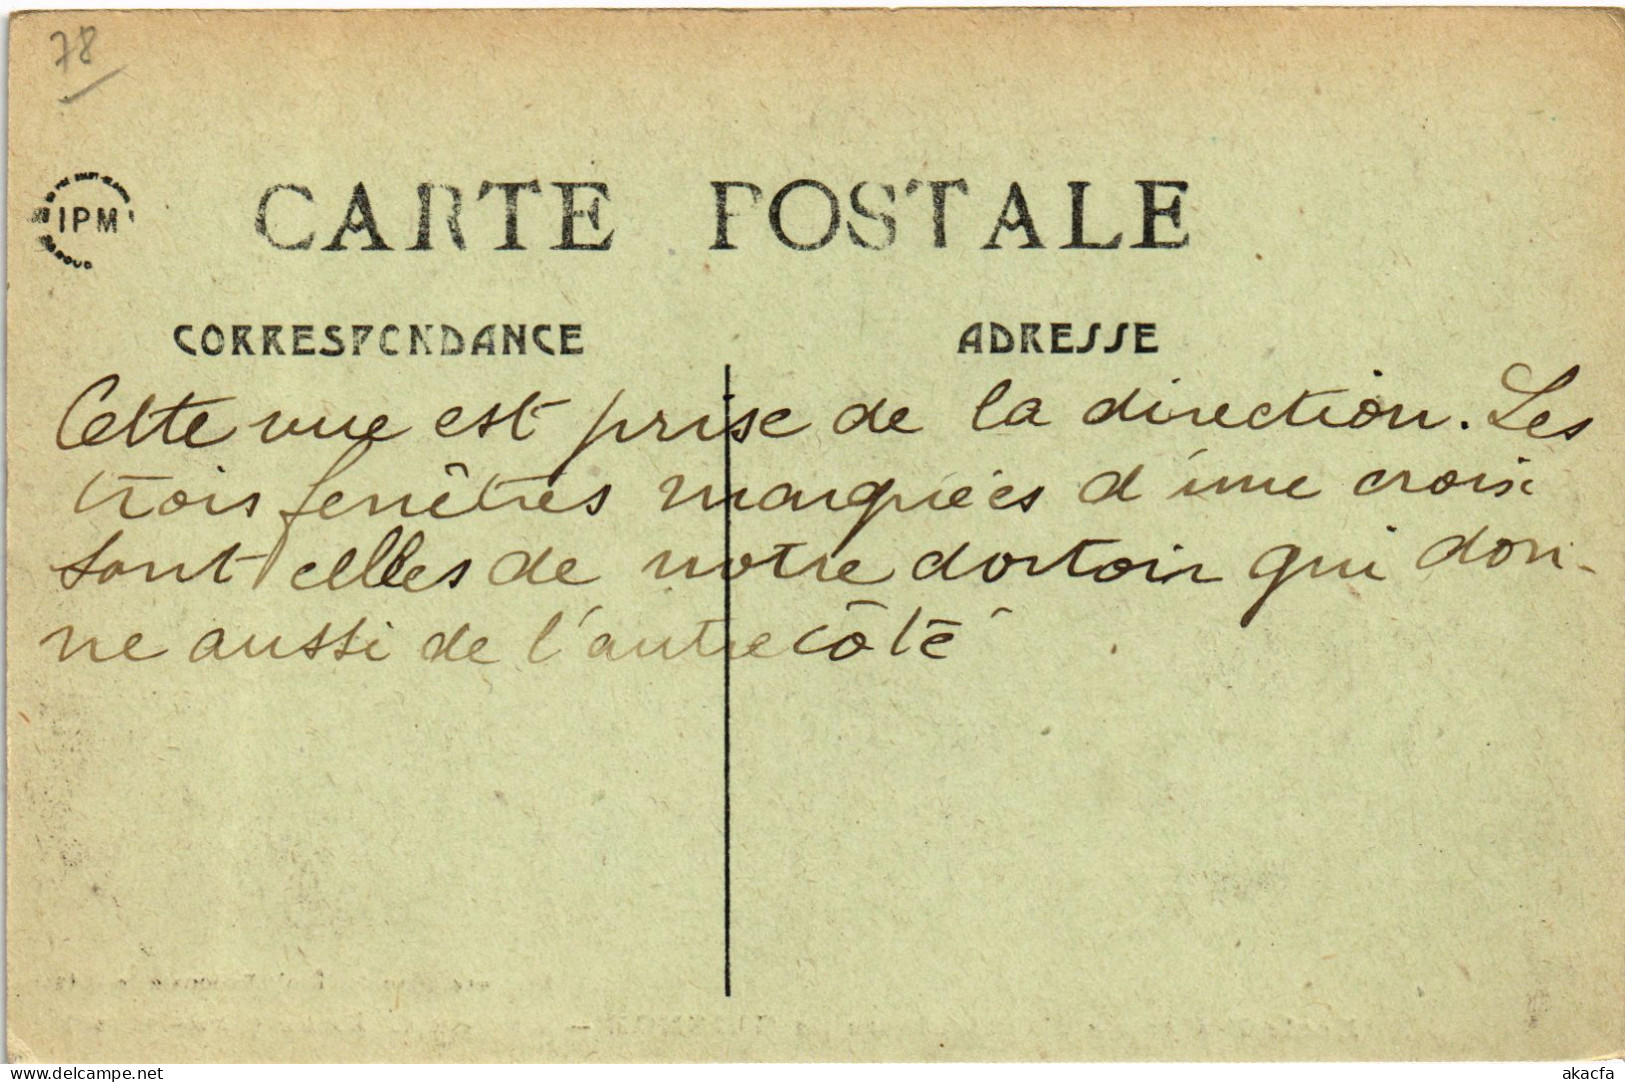 78
IPM
CARTE POSTALE
CORRESPONDANCE
ADRESSE
Cette vue est prise de la direction. Les
trois fenêtres marquées d'une croix
sont celles de notre dortoir qui don-
ne aussi de l'autre côté
www.delcampe.net
akacfa